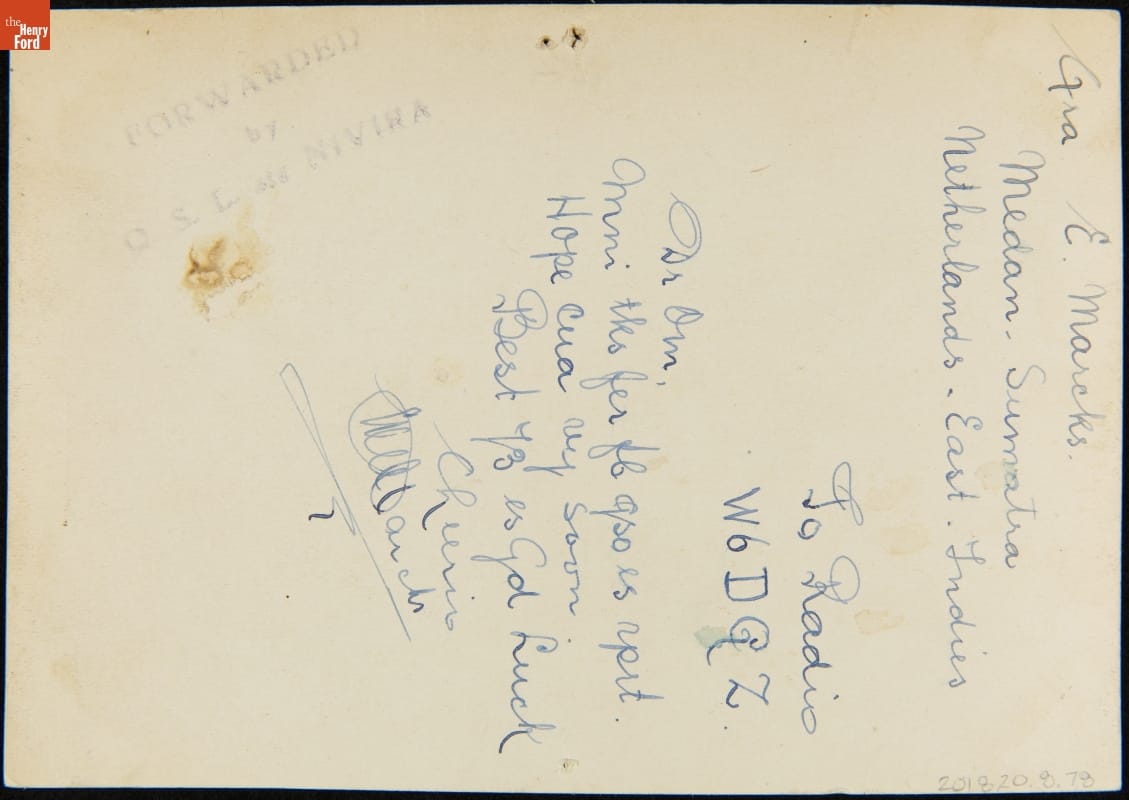 the
Henry
Ford
FORWARDED
by
Q. S. L. NIVIRA
Gra E. Marcks.
Medan - Sumatra
Netherlands - East. Indies
To Radio
W6DQZ.
Dr Om,
Mni tks fer fb qso es rprt.
Hope cua vy soon
Best 73 es Gd Luck
Cheerio
EMarcks
2018.20.8.78